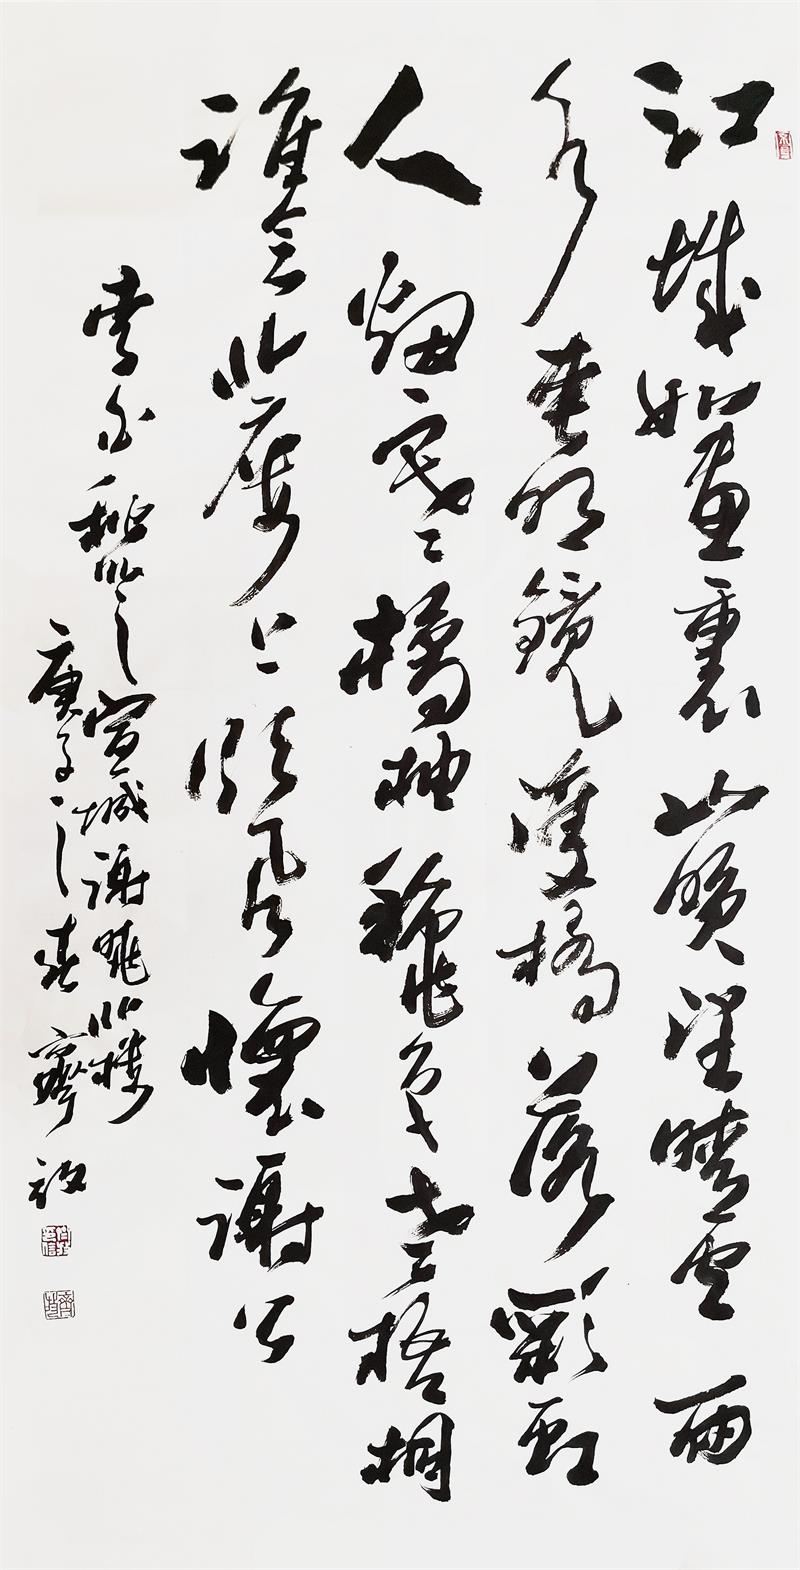 江城如畫裏山晚望晴空兩
水夾明鏡雙橋落彩虹
人烟寒橘柚龝色老梧桐
誰念北樓上臨風懷謝公
李白秋登宣城謝朓北樓
庚子之春